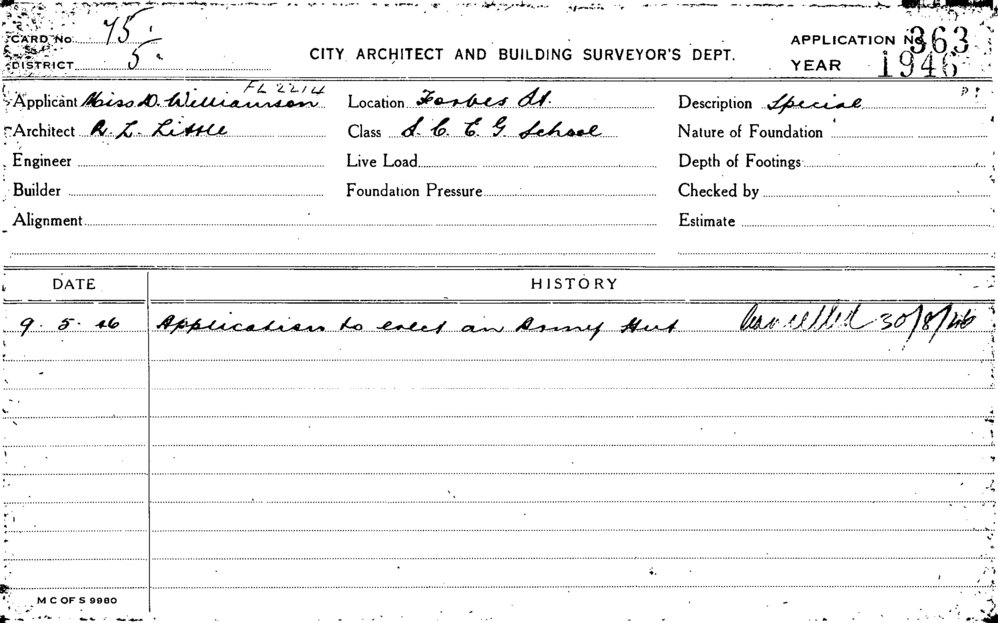 CARD No. 75
DISTRICT 5
CITY ARCHITECT AND BUILDING SURVEYOR'S DEPT.
APPLICATION No. 363
YEAR 1946
FL 2214
Applicant Miss D. Williamson Location Forbes St. Description Special
Architect R. L. Little Class S. C. E. G. School Nature of Foundation
Engineer Live Load Depth of Footings
Builder Foundation Pressure Checked by
Alignment Estimate
DATE HISTORY
9. 5. 46 Application to erect an Army Hut Cancelled 30/8/46
M C OF S 9980